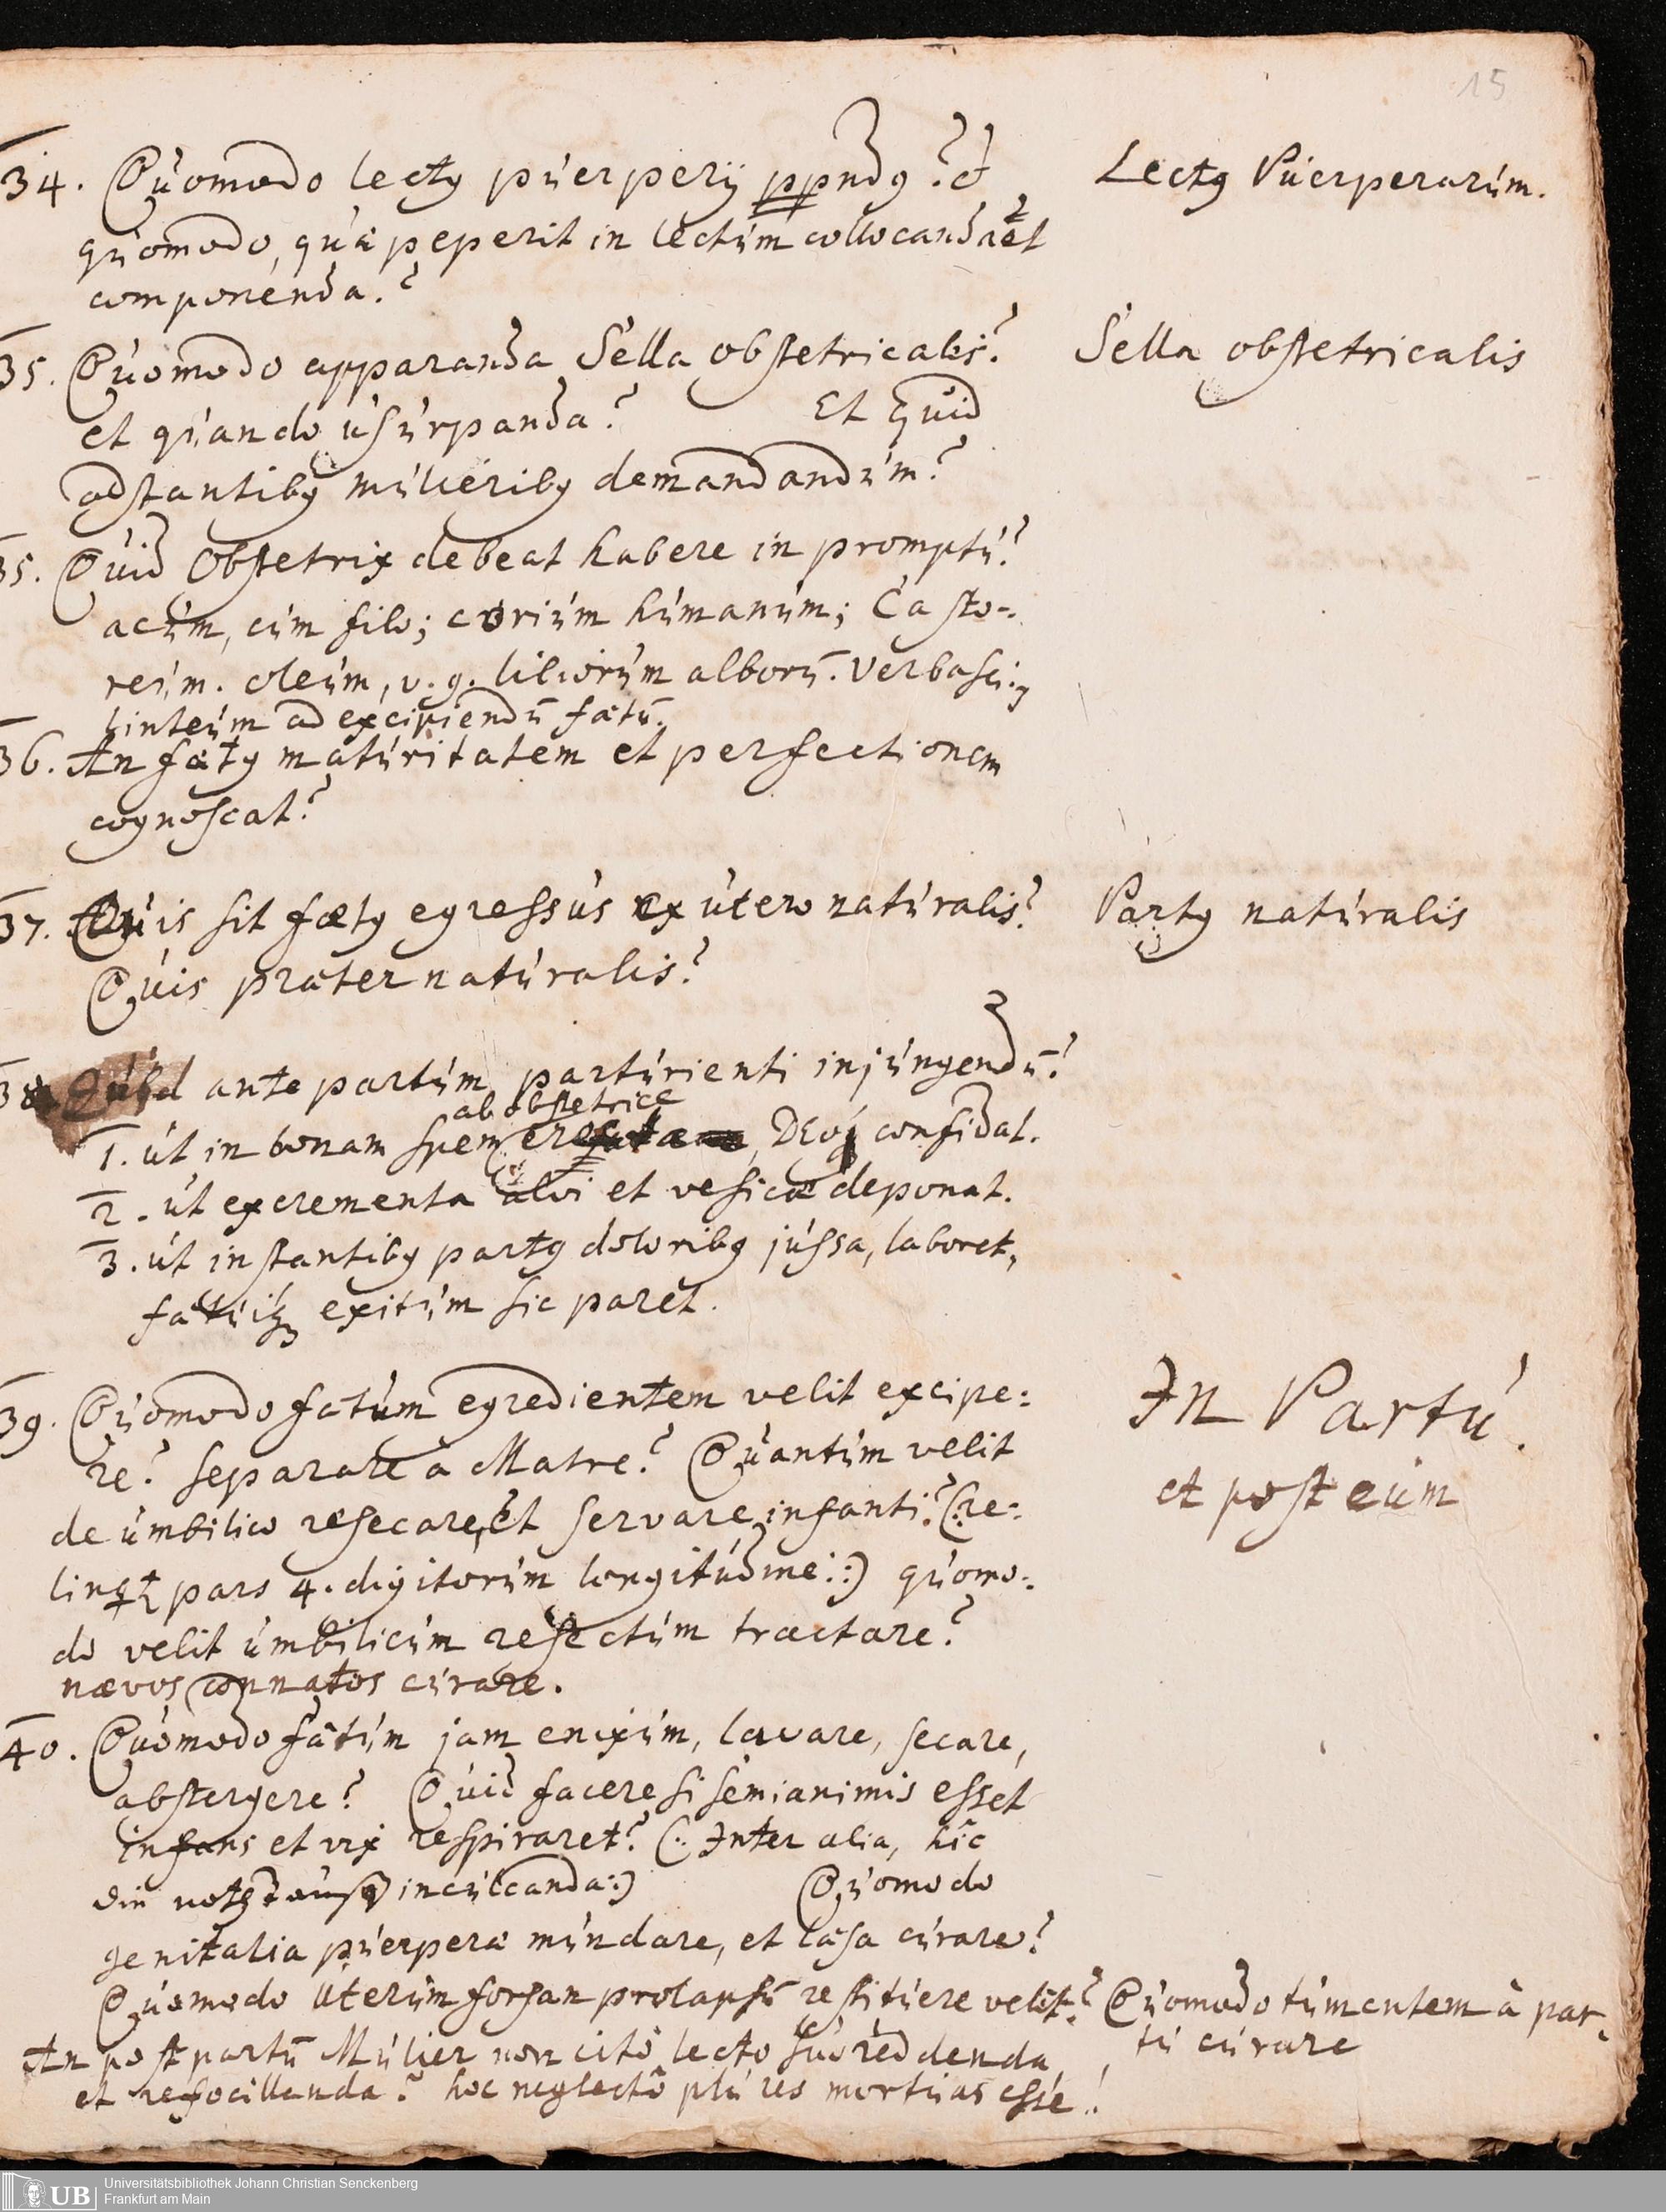 15
34. Quomodo lectꝰ puerperij ppndꝰ? &
quomodo, quæ peperit in lectum collocanda et
componenda.?
Lectꝰ Puerperarum.
35. Quomodo apparanda Sella obstetricalis?
et quando usurpanda? Et Quid
adstantibꝰ mulieribꝰ demandandum?
Sella obstetricalis
35. Quid Obstetrix debeat habere in promptu?
acum, cum filo; corium humanum; Casto-
reum. oleum, v. g. liliorum alborū. Verbasci:
linteum ad excipiendū fœtū.
36. An fœtꝰ maturitatem et perfectionem
cognoscat?
37. Quis sit fœtꝰ egressus ex utero naturalis?
Quis præternaturalis?
Partꝰ naturalis
38. Quid ante partum, parturienti injungendū?
ab obstetrice
1. ut in bonam spem Deoq confidat.
2. ut excrementa alvi et vesicæ deponat.
3. ut instantibꝰ partꝰ doloribꝰ jussa, laboret,
fœtuiq exitum sic paret.
39. Quomodo fœtum egredientem velit excipe:
re? separare à Matre? Quantum velit
de umbilico resecare, et servare infanti? (:re:
pars 4. digitorum longitudine::) quomo:
do velit umbilicum resectum tractare?
nævos connatos curare.
In Partu.
et post eum
40. Quomodo fœtum jam enixum, lavare, secare,
abstergere? Quid facere si semianimis esset
infans et vix respiraret? (: Inter alia, hîc
inculcanda:) Quomodo
genitalia puerperæ mundare, et læsa curare?
Quomodo Uterum forsan prolapsū restituere velit? Quomodo tumentem à par-
tu curare
An post partū Mulier non citò lecto suo reddenda
et refocillanda? hoc neglectô plures mortuas esse!
Universitätsbibliothek Johann Christian Senckenberg
Frankfurt am Main
UB